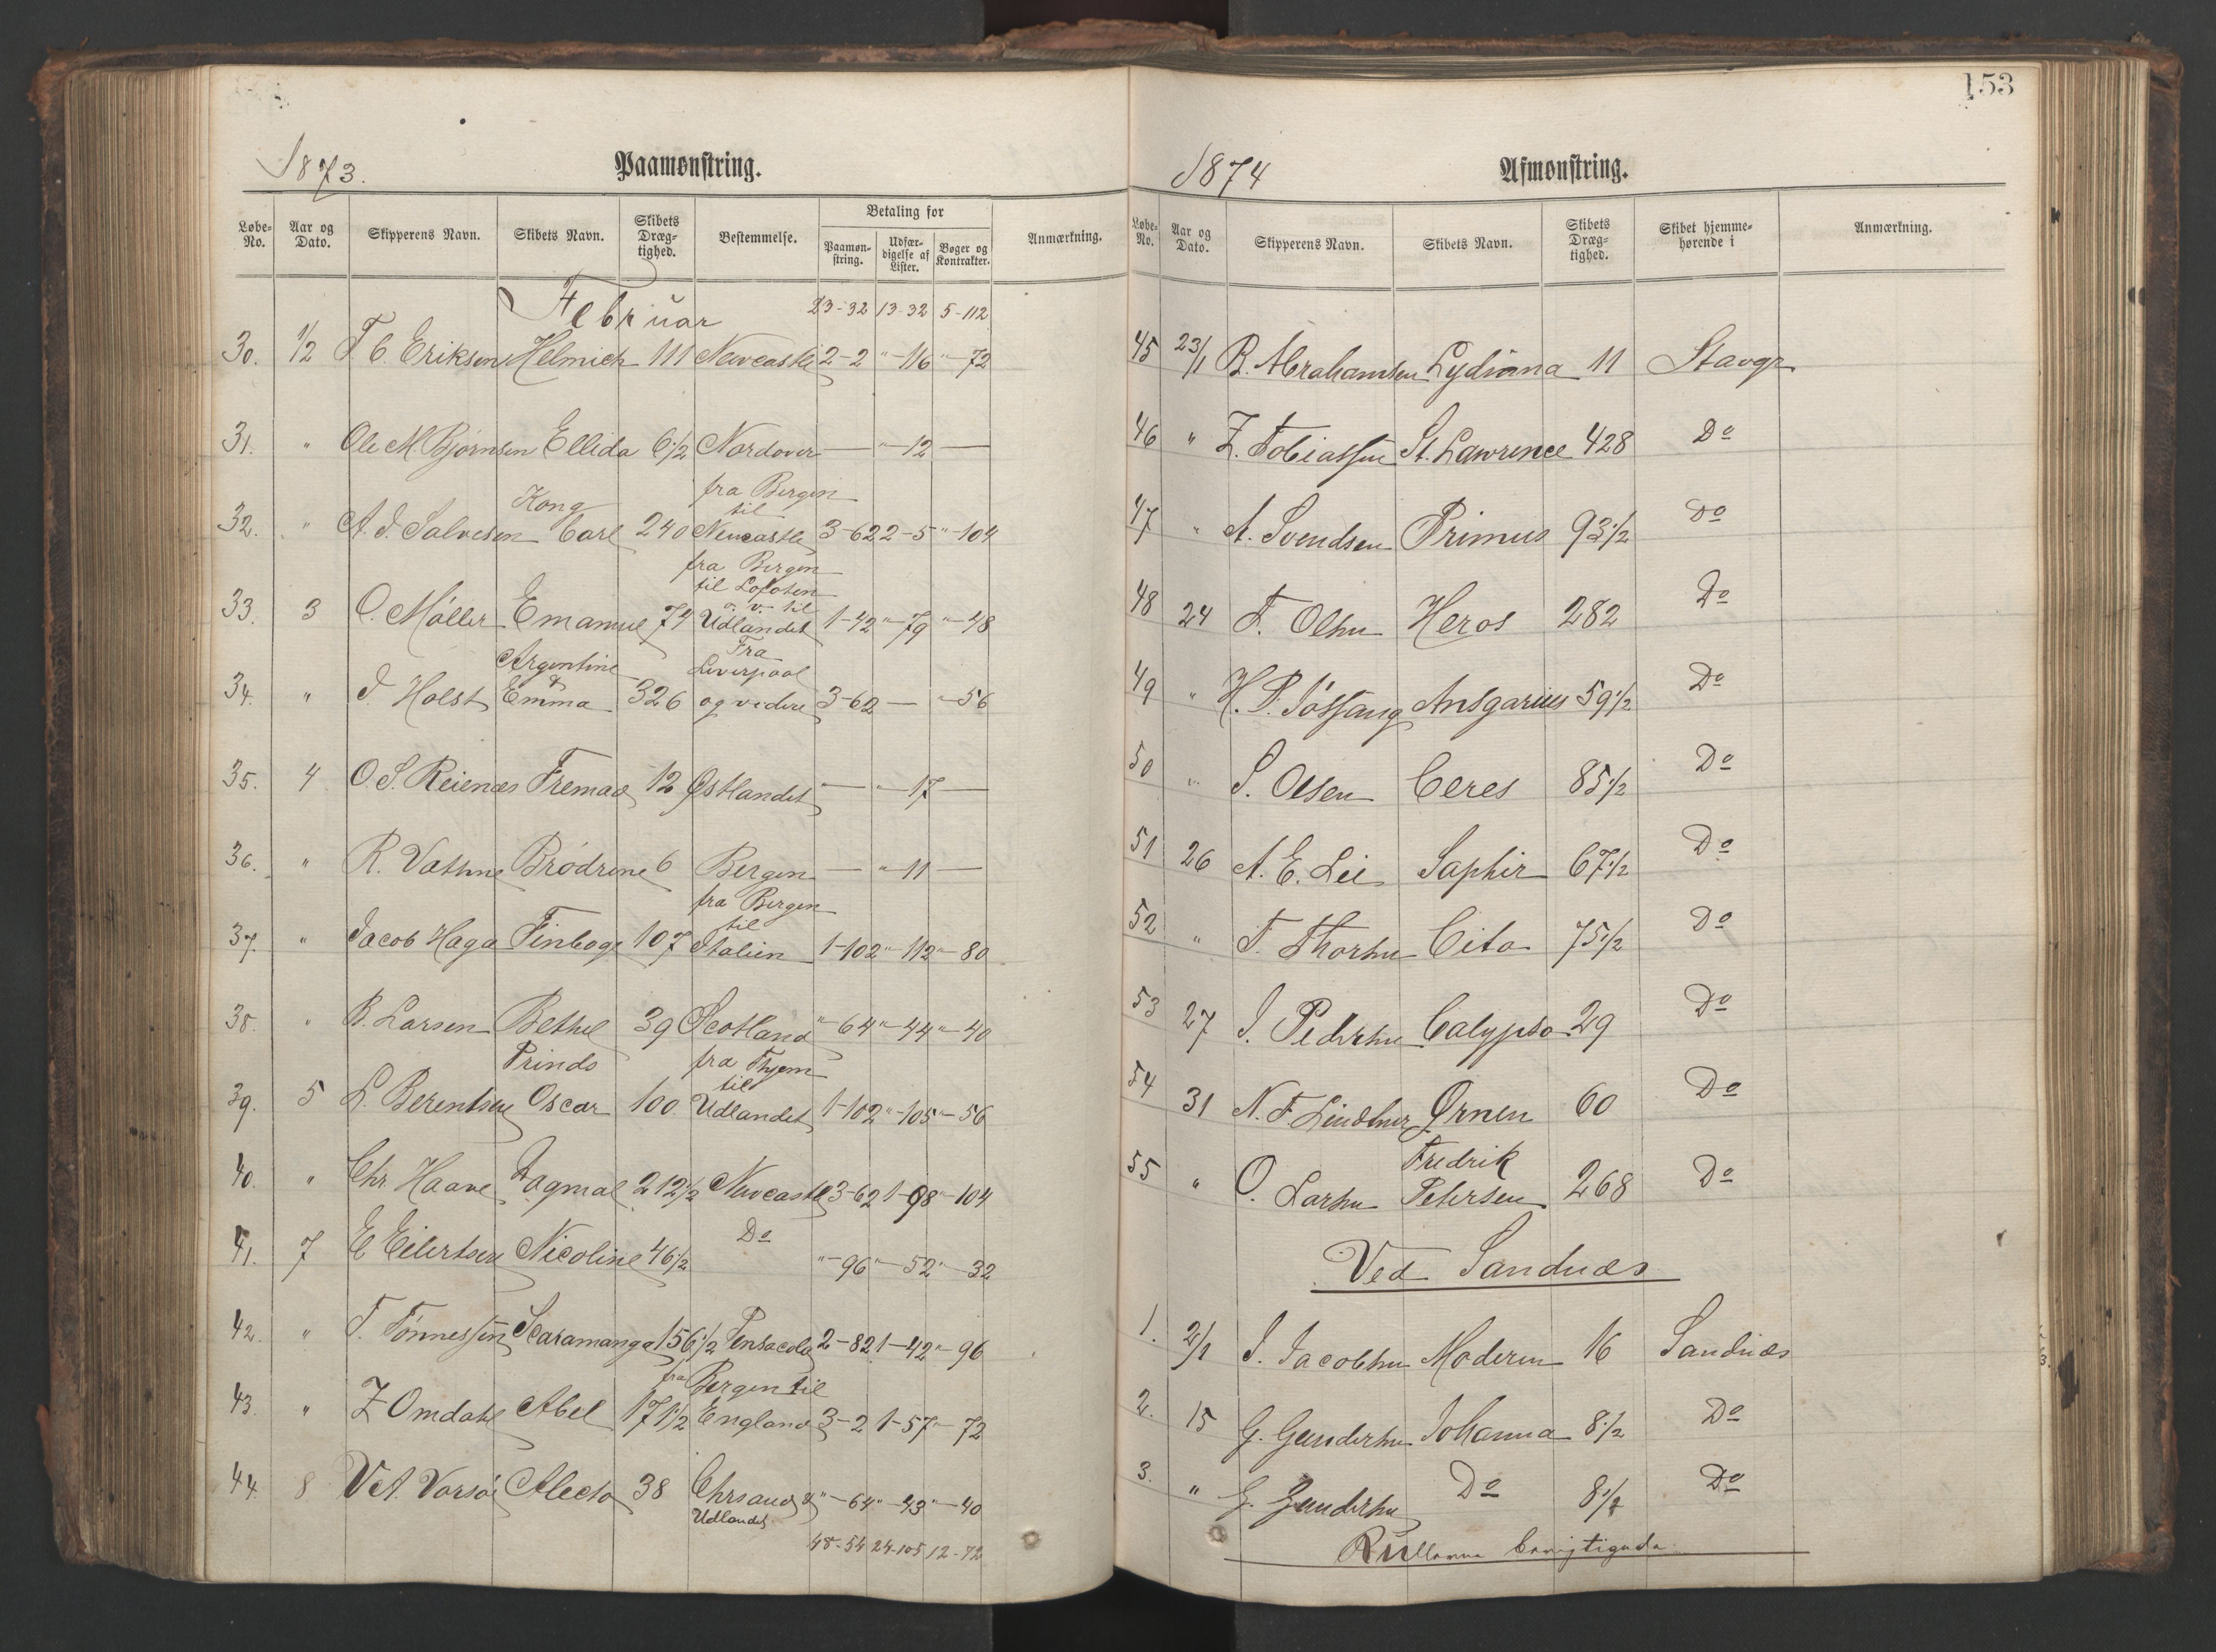 1873.
Paamønstring.
Løbe-No.
Aar og Dato.
Skipperens Navn.
Skibets Navn.
Skibets Dræg-tighed.
Bestemmelse.
Betaling for
Paamøn-string.
Udfær-digelse af Lister.
Bøger og Kontrakter.
Anmærkning.
Februar 23-32 13-32 5-112
30. 1/2 T. C. Eriksen Helmich 111 Newcastle 2-2 "-116 "-72
31. " Ole M. Bjørnsen Ellida 6 1/2 Nordover — "-12 —
Kong fra Bergen
til
32. " A. J. Salvesen Carl 240 Newcastle 3-62 2-5 "-104
fra Bergen
til Lofoten
o. v. til
33. 3 O. Møller Emanuel 74 Udlandet 1-42 "-79 "-48
Fra
Argentine Liverpool
34. " J Holst & Emma 326 og videre 3-62 — "-56
35. 4 O. S. Reienæs Fremad 12 Østlandet — "-17 —
36. " R. Vathne Brødrene 6 Bergen — "-11 —
fra Bergen
til
37. " Jacob Haga Finboge 107 Italien 1-102 "-112 "-80
38. " B. Larsen Bethel 39 Scotland "-64 "-44 "-40
Prinds fra Thjem
til
39. 5 L. Berentsen Oscar 100 Udlandet 1-102 "-105 "-56
40. " Chr. Haave Dagmar 212 1/2 Newcastle 3-62 1-98 "-104
41. 7 E Eilertsen Nicoline 46 1/2 Do "-96 "-52 "-32
42. " T. Tønnessen Scaramanga 156 1/2 Pensacola 2-82 1-42 "-96
fra Bergen til
43. " Z Omdahl Abel 171 1/2 England 3-2 1-57 "-72
44. 8 V. A. Vorsøe Alecto 38 Chrsand & "-64 "-43 "-40
Udlandet
48-54 24-105 12-72
153
1874
Afmønstring.
Løbe-No.
Aar og Dato.
Skipperens Navn.
Skibets Navn.
Skibets Dræg-tighed.
Skibet hjemme-hørende i
Anmærkning.
45 23/1 B. Abrahamsen Lydiana 11 Stavgr
46 " Z. Tobiassen St. Lawrence 428 Do
47 " A. Svendsen Primus 93 1/2 Do
48 24 T. Olsen Heros 282 Do
49 " H. P. Ansgarius 59 1/2 Do
50 " S. Olsen Ceres 85 1/2 Do
51 26 A. E. Lie Saphir 67 1/2 Do
52 " T. Thorsen Cito 75 1/2 Do
53 27 J. Pedersen Calypso 29 Do
54 31 N. F. Lindtner Ørnen 60 Do
Fredrik
55 " O. Larsen Petersen 268 Do
Ved Sandnæs
1. 2/1 J. Jacobsen Moderen 16 Sandnæs
2. 15 G. Gundersen Johanna 8 1/2 Do
3. " G. Gundersen Do 8 1/2 Do
Rullerne